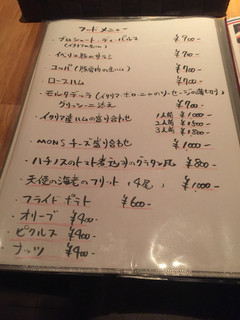 フードメニュー
・プロシュート・ディ・パルマ ¥900-
(イタリアの生ハム)
・イベリコ豚の生ハム ¥900
・コッパ(豚首肉の生ハム) ¥900
・ロースハム ¥700
・モルタデッラ(イタリア・ボローニャのソーセージの薄切り)
グリッシーニ添え ¥700
・イタリア産ハムの盛り合わせ 1人前 ¥1000
2人前 ¥1500
3人前 ¥1800
・MONSチーズ盛り合わせ ¥1000
・ハチノスのトマト煮込みのグラタン風 ¥800-
・天使の海老のフリット(4尾) ¥1000-
・フライドポテト ¥600-
・オリーブ ¥400
・ピクルス ¥400
・ナッツ ¥400